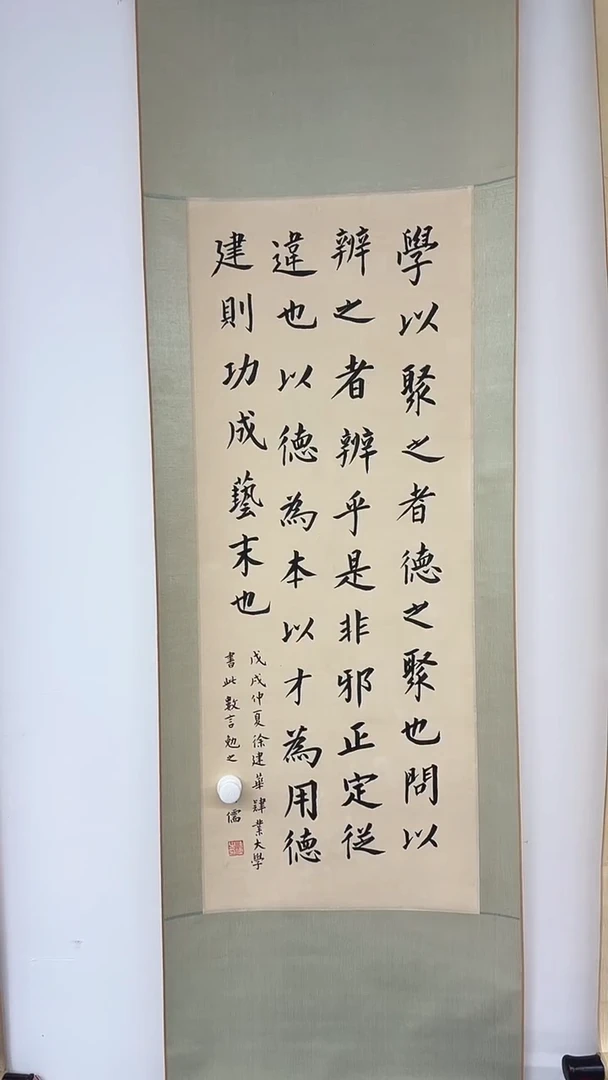 學以聚之者德之聚也問以
辨之者辨乎是非邪正定從
違也以德為本以才為用德
建則功成藝末也
戊戌仲夏徐建華肄業大學
書此數言勉之
儒